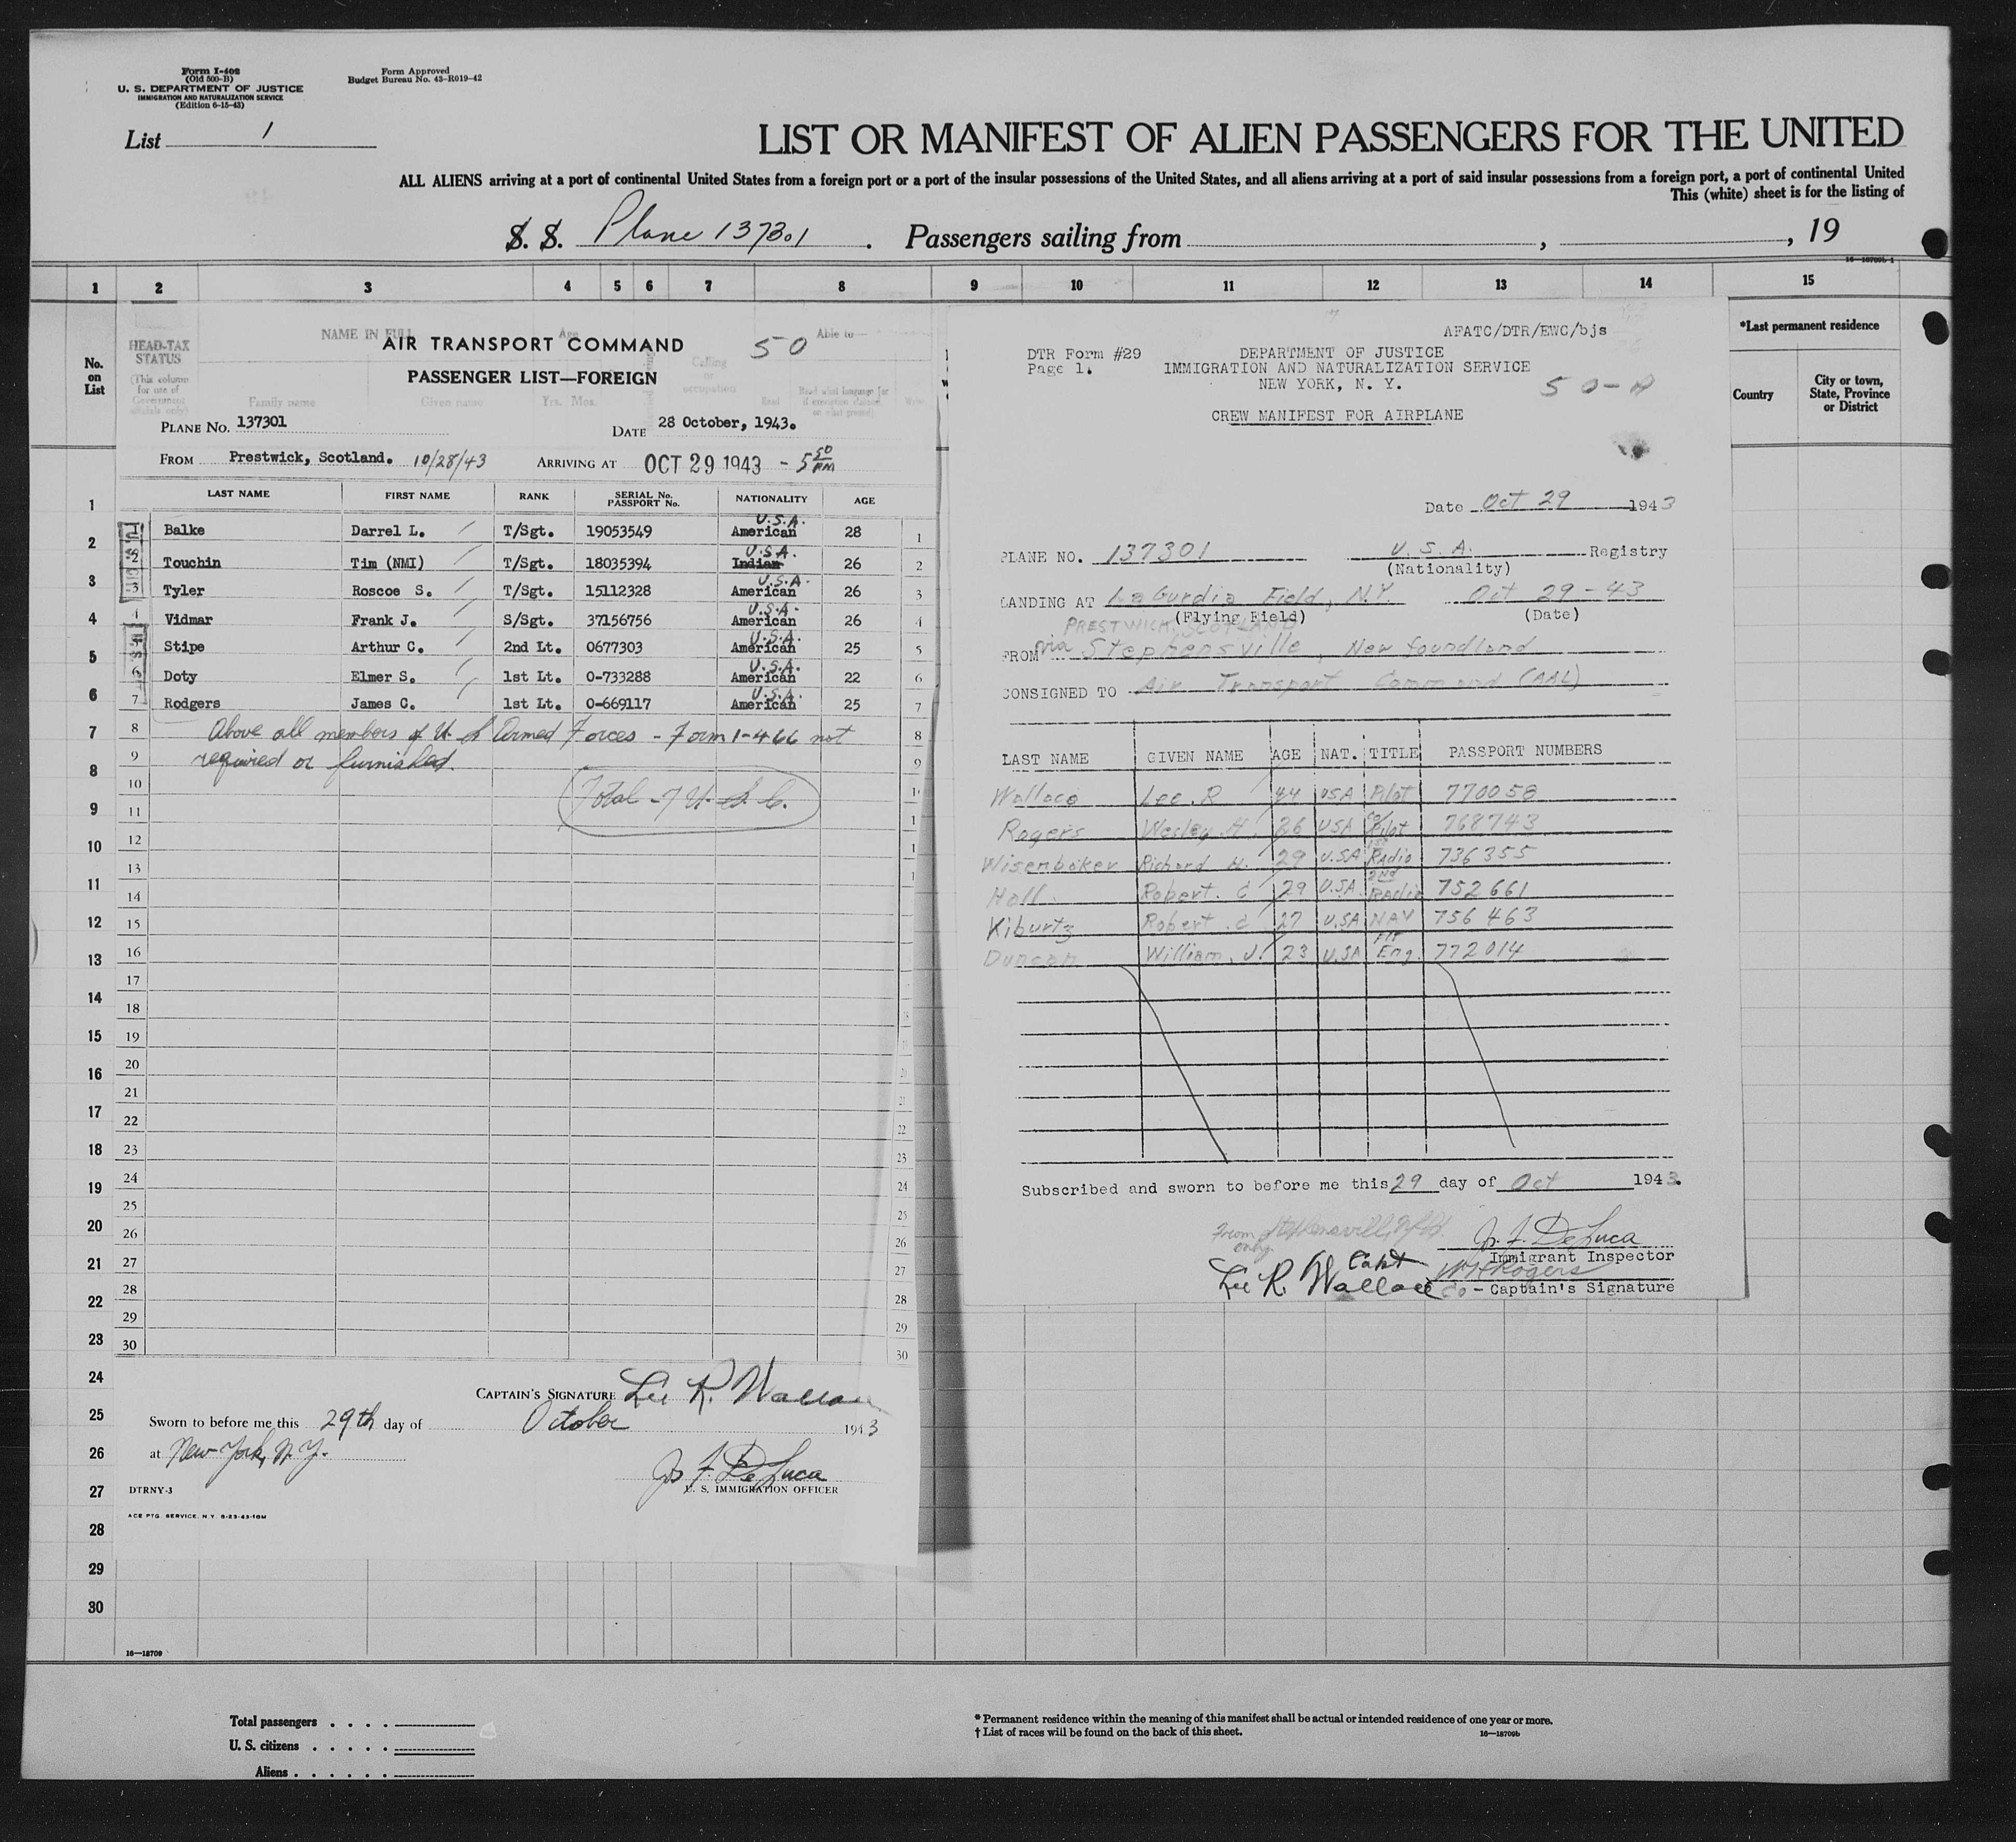 Form I-402
(Old 500-B)
U. S. DEPARTMENT OF JUSTICE
IMMIGRATION AND NATURALIZATION SERVICE
(Edition 6-15-43)
Form Approved
Budget Bureau No. 43-R019-42
List 1
LIST OR MANIFEST OF ALIEN PASSENGERS FOR THE UNITED
ALL ALIENS arriving at a port of continental United States from a foreign port or a port of the insular possessions of the United States, and all aliens arriving at a port of said insular possessions from a foreign port, a port of continental United
This (white) sheet is for the listing of
S. S. Plane 137301 . Passengers sailing from , , 19
16—18709b-1
1 2 3 4 5 6 7 8 9 10 11 12 13 14 15
No. on List
HEAD-TAX STATUS
(This column for use of Government officials only)
NAME IN FULL
Family name Given name
Age
Yrs. Mos.
Calling or occupation
Able to—
Read
*Last permanent residence
Country
City or town, State, Province or District
AIR TRANSPORT COMMAND 50
PASSENGER LIST—FOREIGN
PLANE No. 137301
DATE 28 October, 1943.
FROM Prestwick, Scotland. 10/28/43 ARRIVING AT OCT 29 1943 - 5 50 PM
LAST NAME FIRST NAME RANK SERIAL No. PASSPORT No. NATIONALITY AGE
Balke Darrel L. T/Sgt. 19053549 U.S.A. American 28 1
2 Touchin Tim (NMI) T/Sgt. 18035394 U.S.A. Indian 26 2
3 Tyler Roscoe S. T/Sgt. 15112328 U.S.A. American 26 3
4 Vidmar Frank J. S/Sgt. 37156756 U.S.A. American 26 4
Stipe Arthur C. 2nd Lt. 0677303 U.S.A. American 25 5
6 Doty Elmer S. 1st Lt. 0-733288 U.S.A. American 22 6
7 Rodgers James C. 1st Lt. 0-669117 U.S.A. American 25 7
8 Above all members of U S Armed Forces - Form 1-466 not 8
9 required or furnished. 9
10 Total - 7 U. S. C.
11
12
13
14
15
16
17
18
19
20
21
22
23
24
25
26
27
28
29
30
CAPTAIN'S SIGNATURE Lee R. Wallace
Sworn to before me this 29th day of October 1943
at New York, N.Y.
Jos F. De Luca
U. S. IMMIGRATION OFFICER
DTRNY-3
ACE PTG. SERVICE. N.Y. 8-23-43-10M
AFATC/DTR/EWC/bjs
DTR Form #29
Page 1.
DEPARTMENT OF JUSTICE
IMMIGRATION AND NATURALIZATION SERVICE
NEW YORK, N. Y.
50-A
CREW MANIFEST FOR AIRPLANE
Date Oct 29 1943
PLANE NO. 137301 U.S.A. Registry
(Nationality)
LANDING AT LaGurdia Field, N.Y. Oct 29-43
(Flying Field) (Date)
PRESTWICK, SCOTLAND
FROM via Stephensville, Newfoundland
CONSIGNED TO Air Transport Command (AAL)
LAST NAME GIVEN NAME AGE NAT. TITLE PASSPORT NUMBERS
Wallace Lee. R 44 USA Pilot 770058
Rogers Wesley H. 26 USA Co/Pilot 768743
Wisenbaker Richard H. 29 U.S.A Radio 736355
Hall Robert. C 29 U.S.A. 2nd Radio 752661
Kiburtz Robert. C 27 U.S.A NAV 756463
Duncan William, J. 23 U.S.A Flt Eng. 772014
Subscribed and sworn to before me this 29 day of Oct 1943.
From Stephensville, Nfld. only
Jos. F. De Luca
Immigrant Inspector
Lee R. Wallace Capt W H Rogers
Co - Captain's Signature
1
2
3
4
5
6
7
8
9
10
11
12
13
14
15
16
17
18
19
20
21
22
23
24
25
26
27
28
29
30
16—18709
Total passengers . . . .
U. S. citizens . . . . .
Aliens . . . . . .
* Permanent residence within the meaning of this manifest shall be actual or intended residence of one year or more.
† List of races will be found on the back of this sheet.
16—18709b